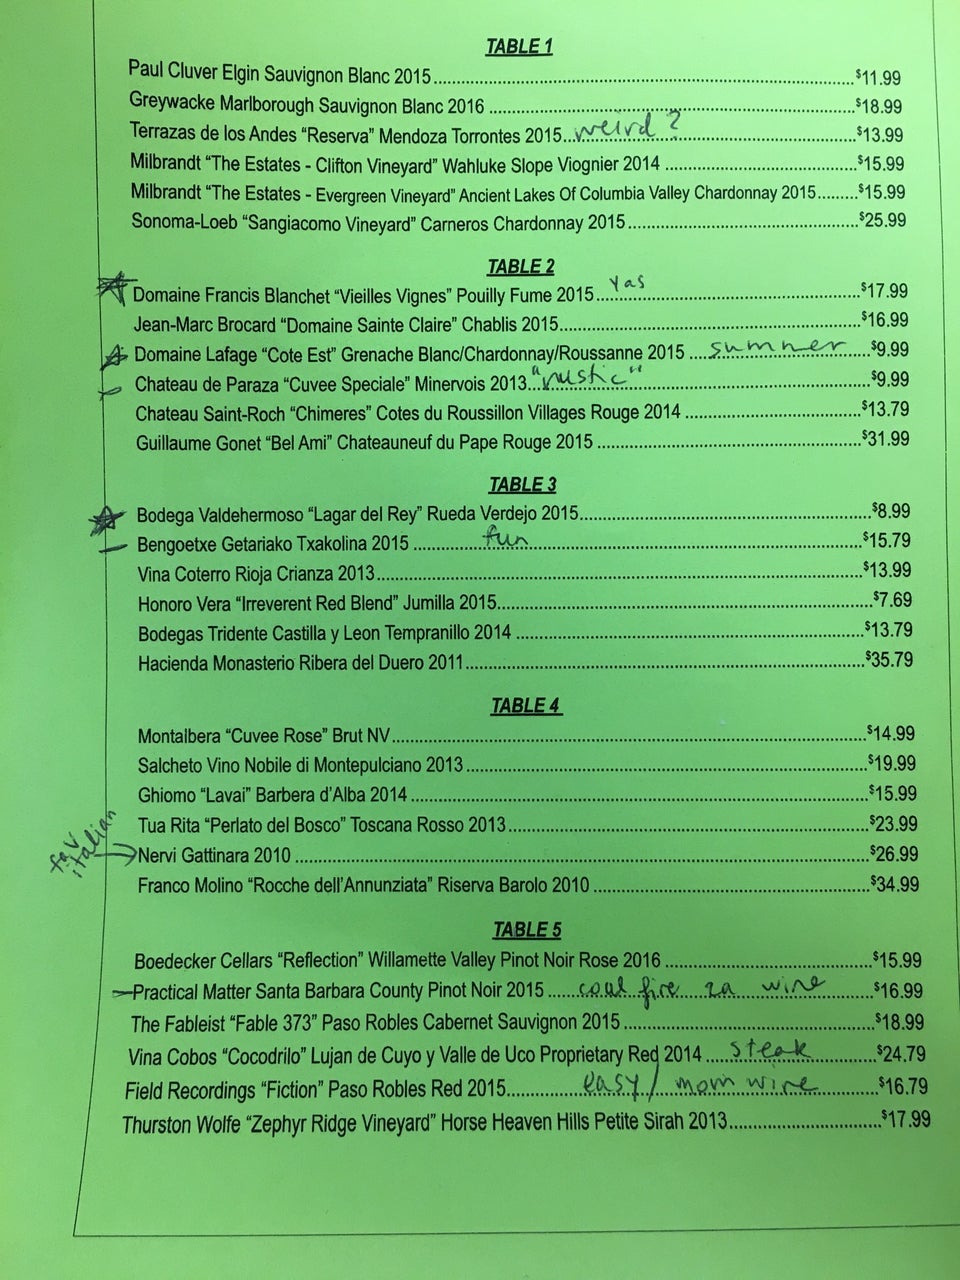 TABLE 1
Paul Cluver Elgin Sauvignon Blanc 2015 $11.99
Greywacke Marlborough Sauvignon Blanc 2016 $18.99
Terrazas de los Andes “Reserva” Mendoza Torrontes 2015 weird? $13.99
Milbrandt “The Estates - Clifton Vineyard” Wahluke Slope Viognier 2014 $15.99
Milbrandt “The Estates - Evergreen Vineyard” Ancient Lakes Of Columbia Valley Chardonnay 2015 $15.99
Sonoma-Loeb “Sangiacomo Vineyard” Carneros Chardonnay 2015 $25.99
TABLE 2
Domaine Francis Blanchet “Vieilles Vignes” Pouilly Fume 2015 Yas $17.99
Jean-Marc Brocard “Domaine Sainte Claire” Chablis 2015 $16.99
Domaine Lafage “Cote Est” Grenache Blanc/Chardonnay/Roussanne 2015 summer $9.99
Chateau de Paraza “Cuvee Speciale” Minervois 2013 "rustic" $9.99
Chateau Saint-Roch “Chimeres” Cotes du Roussillon Villages Rouge 2014 $13.79
Guillaume Gonet “Bel Ami” Chateauneuf du Pape Rouge 2015 $31.99
TABLE 3
Bodega Valdehermoso “Lagar del Rey” Rueda Verdejo 2015 $8.99
Bengoetxe Getariako Txakolina 2015 fun $15.79
Vina Coterro Rioja Crianza 2013 $13.99
Honoro Vera “Irreverent Red Blend” Jumilla 2015 $7.69
Bodegas Tridente Castilla y Leon Tempranillo 2014 $13.79
Hacienda Monasterio Ribera del Duero 2011 $35.79
TABLE 4
Montalbera “Cuvee Rose” Brut NV $14.99
Salcheto Vino Nobile di Montepulciano 2013 $19.99
Ghiomo “Lavai” Barbera d’Alba 2014 $15.99
Tua Rita “Perlato del Bosco” Toscana Rosso 2013 $23.99
fav italian
Nervi Gattinara 2010 $26.99
Franco Molino “Rocche dell’Annunziata” Riserva Barolo 2010 $34.99
TABLE 5
Boedecker Cellars “Reflection” Willamette Valley Pinot Noir Rose 2016 $15.99
Practical Matter Santa Barbara County Pinot Noir 2015 coal fire za wine $16.99
The Fableist “Fable 373” Paso Robles Cabernet Sauvignon 2015 $18.99
Vina Cobos “Cocodrilo” Lujan de Cuyo y Valle de Uco Proprietary Red 2014 steak $24.79
Field Recordings “Fiction” Paso Robles Red 2015 easy/mom wine $16.79
Thurston Wolfe “Zephyr Ridge Vineyard” Horse Heaven Hills Petite Sirah 2013 $17.99